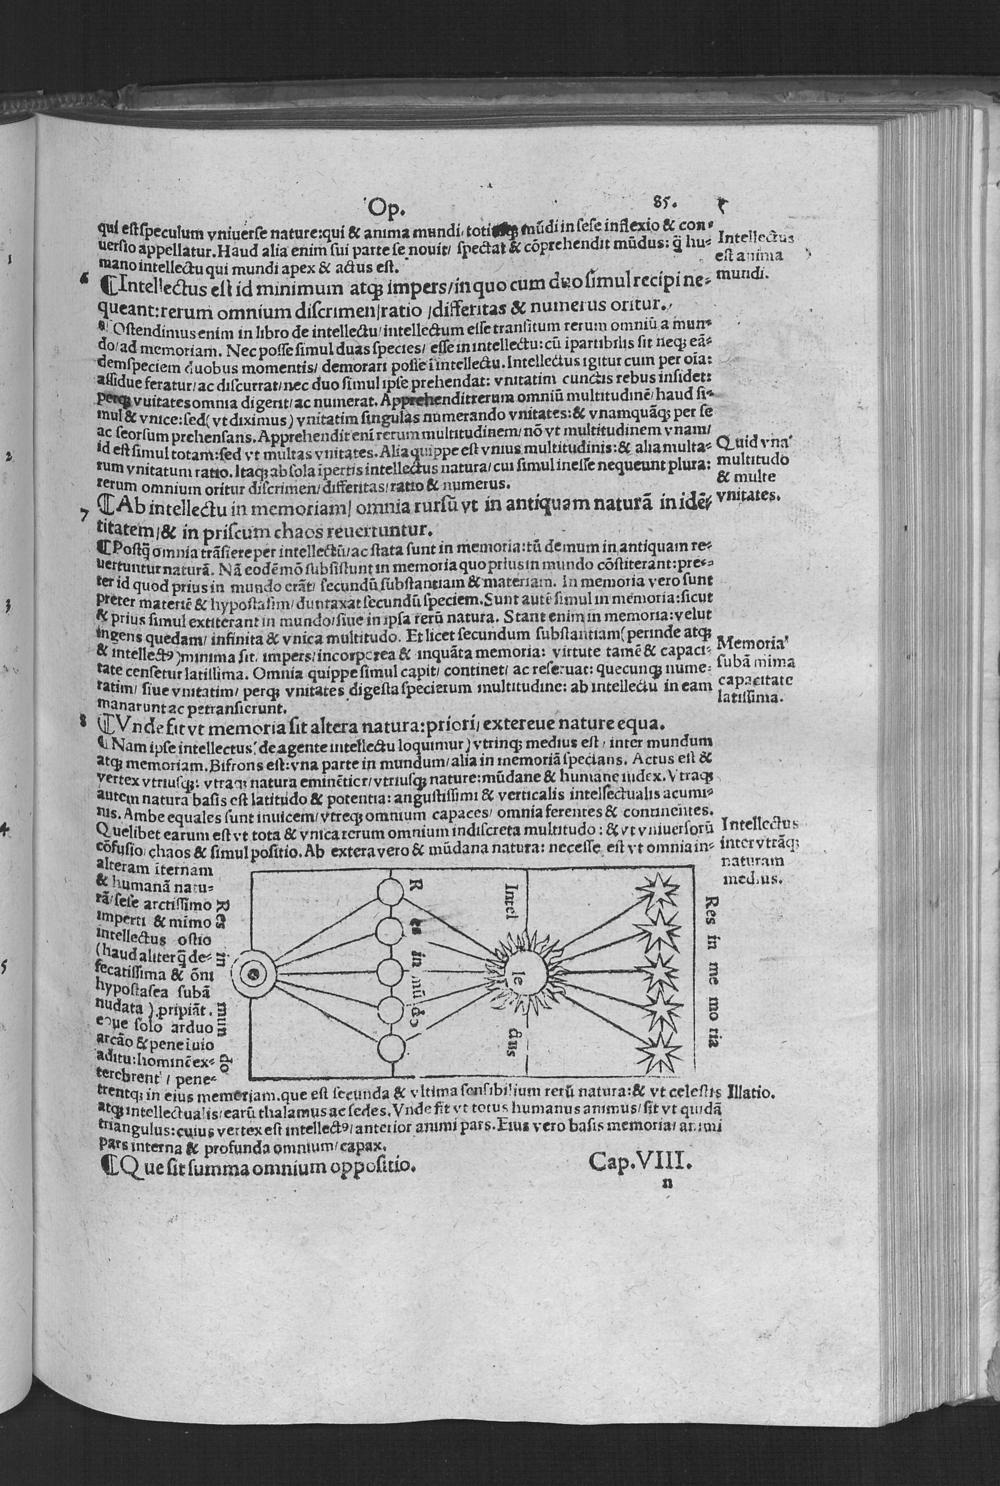 Op. 85.
qui est speculum vniuerse nature: qui & anima mundi, toti mũdi in sese inflexio & con-
uersio appellatur. Haud alia enim sui parte se nouit/ spectat & cõprehendit mũdus: q̃ hu-
mano intellectu qui mundi apex & actus est.
Intellectus
est anima
mundi.
6 ¶Intellectus est id minimum atq; impers/in quo cum duo simul recipi ne-
queant: rerum omnium discrimen/ratio /differitas & numerus oritur.
¶Ostendimus enim in libro de intellectu/intellectum esse transitum rerum omniũ a mun-
do/ad memoriam. Nec posse simul duas species/ esse in intellectu: cũ ipartibilis sit neq; eã-
dem speciem duobus momentis/ demorari posse ĩ intellectu. Intellectus igitur cum per oĩa:
assidue feratur/ac discurrat/nec duo simul ipse prehendat: vnitatim cunctis rebus insidet:
perq; vnitates omnia digerit/ac numerat. Apprehendit rerum omniũ multitudinẽ/haud si-
mul & vnice: sed( vt diximus) vnitatim singulas numerando vnitates: & vnamquãq; per se
ac seorsum prehensans. Apprehendit enĩ rerum multitudinem/nõ vt multitudinem vnam/
id est simul totam: sed vt multas vnitates. Alia quippe est vnius multitudinis: & alia multa-
rum vnitatum ratio. Itaq; ab sola ipertis intellectus natura/cui simul inesse nequeunt plura:
rerum omnium oritur discrimen/differitas/ratio & numerus.
Quid vna
multitudo
& multe
vnitates.
7 ¶Ab intellectu in memoriam/ omnia rursũ vt in antiquam naturã in idẽ-
titatem/& in priscum chaos reuertuntur.
¶Postq̃ omnia trãsiere per intellectũ/ac stata sunt in memoria: tũ demum in antiquam re-
uertuntur naturã. Nã eodẽ mõ subsistunt in memoria quo prius in mundo cõstiterant: pre-
ter id quod prius in mundo erãt/ secundũ substantiam & materiam. In memoria vero sunt
preter materiẽ & hypostasim/ duntaxat secundũ speciem. Sunt autẽ simul in memoria: sicut
& prius simul extiterant in mundo/siue in ipsa rerũ natura. Stant enim in memoria: velut
ingens quedam/ infinita & vnica multitudo. Et licet secundum substantiam( perinde atq;
& intellectꝰ)minima sit, impers/incorporea & inquãta memoria: virtute tamẽ & capaci-
tate censetur latissima. Omnia quippe simul capit/ continet/ ac reseruat: quecunq; nume-
ratim/ siue vnitatim/ perq; vnitates digesta specierum multitudine: ab intellectu in eam
manarunt ac petransierunt.
Memoria
subã mima
capacitate
latissima.
8 ¶Vnde fit vt memoria sit altera natura: priori/ extereue nature equa.
¶Nam ipse intellectus( de agente intellectu loquimur) vtrinq; medius est/ inter mundum
atq; memoriam. Bifrons est: vna parte in mundum/alia in memoriã spectans. Actus est &
vertex vtriusq;: vtraq; natura eminẽtior/vtriusq; nature: mũdane & humane iudex. Vtraq;
autem natura basis est latitudo & potentia: angustissimi & verticalis intellectualis acumi-
nis. Ambe equales sunt inuicem/vtreq; omnium capaces/ omnia ferentes & continentes.
Quelibet earum est vt tota & vnica rerum omnium indiscreta multitudo: & vt vniuersorũ
cõfusio/chaos & simul positio. Ab extera vero & mũdana natura: necesse est vt omnia in-
Intellectus
inter vtrãq;
naturam
medius.
alteram iternam
& humanã natu-
rã/sese arctissimo
imperti & mimo
intellectus ostio
(haud aliter q̃ de-
fecatissima & õni
hypostasea subã
nudata ) pripiãt.
eoue solo arduo
arcão & pene iuio
aditu: hominẽ ex-
terebrent/ pene-
Res in mun do
Res in mũ do
Intel le ctus
Res in me mo ria
trentq; in eius memoriam. que est secunda & vltima sensibilium rerũ natura: & vt celestis
atq; intellectualis/earũ thalamus ac sedes. Vnde fit vt totus humanus animus/sit vt quidã
triangulus: cuius vertex est intellectꝰ/anterior animi pars. Eius vero basis memoria/animi
pars interna & profunda omnium/capax.
Illatio.
¶Que sit summa omnium oppositio. Cap.VIII.
n
1
2
3
4
5